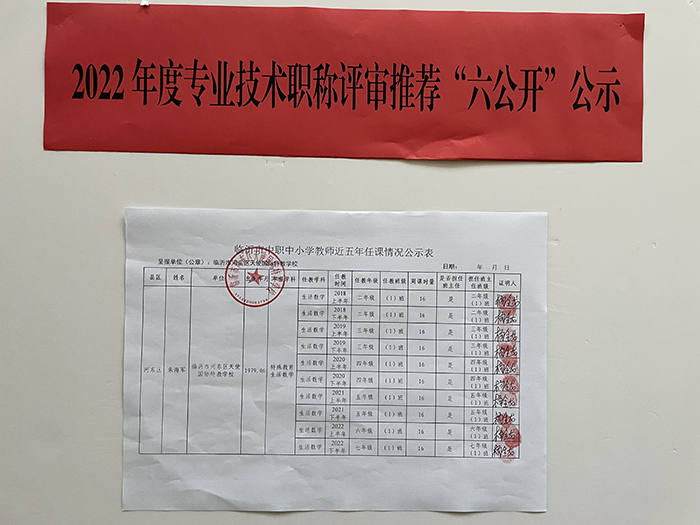 2022 年度专业技术职称评审推荐“六公开”公示
临沂市中职中小学教师近五年任课情况公示表
呈报单位（公章）：临沂市河东区天使国际特教学校 日期： 年 月 日
县区 姓名 单位 任教学科 任教时间 任教年级 任教班级 周课时量 是否担任班主任 担任班主任班级 证明人
河东区 朱海军 临沂市河东区天使国际特教学校 1979.06 特殊教育生活数学
生活数学 2018上半年 二年级 （1）班 16 是 二年级（1）班
生活数学 2018下半年 三年级 （1）班 16 是 二年级（1）班
生活数学 2019上半年 三年级 （1）班 18 是 三年级（1）班
生活数学 2019下半年 三年级 （1）班 16 是 三年级（1）班
生活数学 2020上半年 四年级 （1）班 16 是 四年级（1）班
生活数学 2020下半年 四年级 （1）班 16 是 四年级（1）班
生活数学 2021上半年 五年级 （1）班 16 是 五年级（1）班
生活数学 2021下半年 五年级 （1）班 16 是 五年级（1）班
生活数学 2022上半年 六年级 （1）班 16 是 六年级（1）班
生活数学 2022下半年 七年级 （1）班 16 是 七年级（1）班